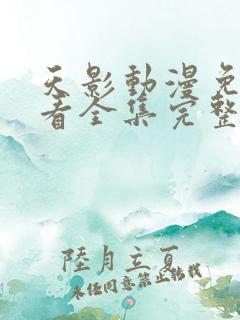 天影動漫免
看全集完整
陸月立夏
未经同意禁止转载